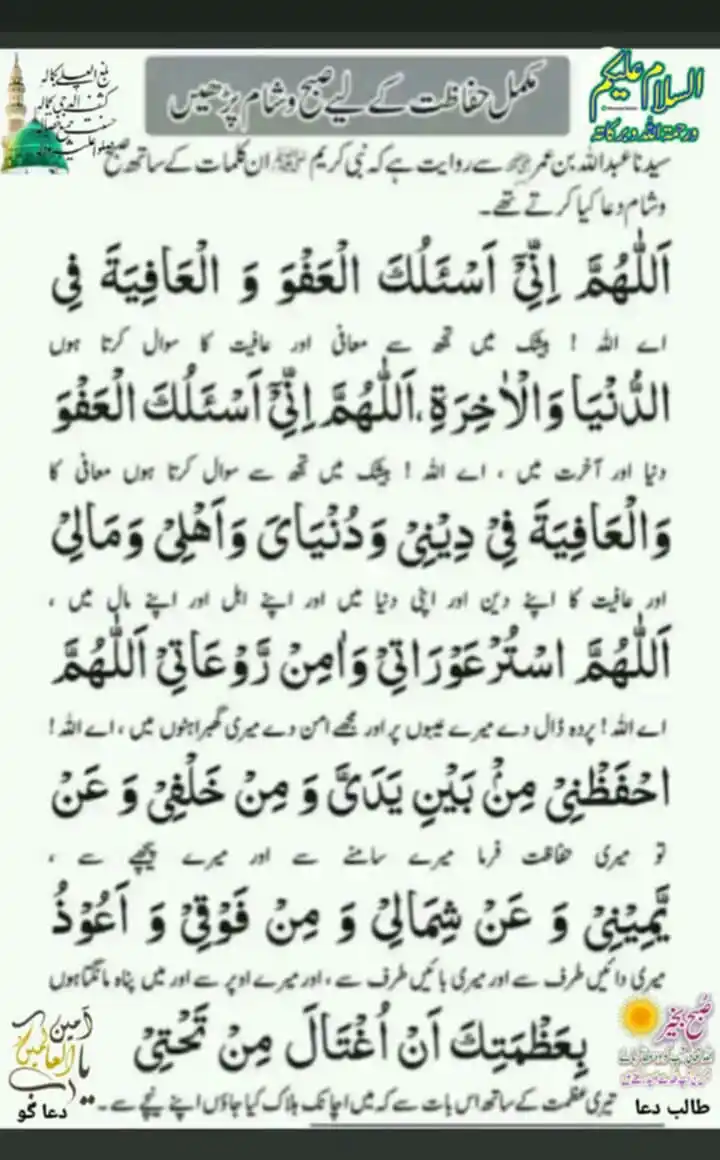 السلام علیکم
ورحمۃ اللہ وبرکاتہ
مکمل حفاظت کے لیے صبح و شام پڑھیں
بلغ العلےٰ بکمالہ
کشف الدجیٰ بجمالہ
سیدنا عبداللہ بن عمر سے روایت ہے کہ نبی کریم ﷺ ان کلمات کے ساتھ صبح
و شام دعا کیا کرتے تھے۔
اَللّٰهُمَّ اِنِّیْٓ اَسْئَلُكَ الْعَفْوَ وَ الْعَافِیَةَ فِی
اے اللہ ! بیشک میں تجھ سے معافی اور عافیت کا سوال کرتا ہوں
الدُّنْیَا وَالْاٰخِرَةِ، اَللّٰهُمَّ اِنِّیْٓ اَسْئَلُكَ الْعَفْوَ
دنیا اور آخرت میں ، اے اللہ ! بیشک میں تجھ سے سوال کرتا ہوں معافی کا
وَالْعَافِیَةَ فِیْ دِیْنِیْ وَدُنْیَایَ وَاَهْلِیْ وَمَالِیْ
اور عافیت کا اپنے دین اور اپنی دنیا میں اور اپنے اہل اور اپنے مال میں ،
اَللّٰهُمَّ اسْتُرْ عَوْرَاتِیْ وَاٰمِنْ رَّوْعَاتِیْ اَللّٰهُمَّ
اے اللہ ! پردہ ڈال دے میرے عیبوں پر اور مجھے امن دے میری گھبراہٹوں میں ، اے اللہ !
احْفَظْنِیْ مِنْۢ بَیْنِ یَدَیَّ وَ مِنْ خَلْفِیْ وَ عَنْ
تو میری حفاظت فرما میرے سامنے سے اور میرے پیچھے سے ،
یَّمِیْنِیْ وَ عَنْ شِمَالِیْ وَ مِنْ فَوْقِیْ وَ اَعُوْذُ
میری دائیں طرف سے اور میری بائیں طرف سے ، اور میرے اوپر سے اور میں پناہ مانگتا ہوں
بِعَظْمَتِكَ اَنْ اُغْتَالَ مِنْ تَحْتِیْ
تیری عظمت کے ساتھ اس بات سے کہ میں اچانک ہلاک کیا جاؤں اپنے نیچے سے ۔
صبح بخیر
طالب دعا
آمین
یا رب العالمین
دعا گو